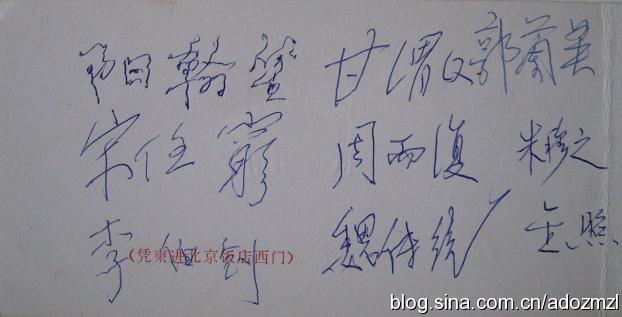 阳翰笙 甘渭汉 郭蘭英
宋任窮 周而復 朱穆之
李伯钊 魏传统 金照
（凭柬进北京饭店西门）
blog.sina.com.cn/adozmzl